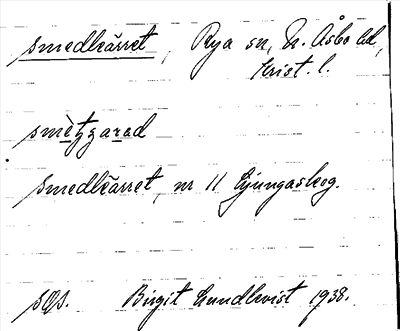 Smedkärret, Rya sn, N. Åsbo hd,
Krist. l.
smètzgarad
Smedkärret, nr 11 Ljungaskog.
sgs. Birgit Lundkvist 1938.